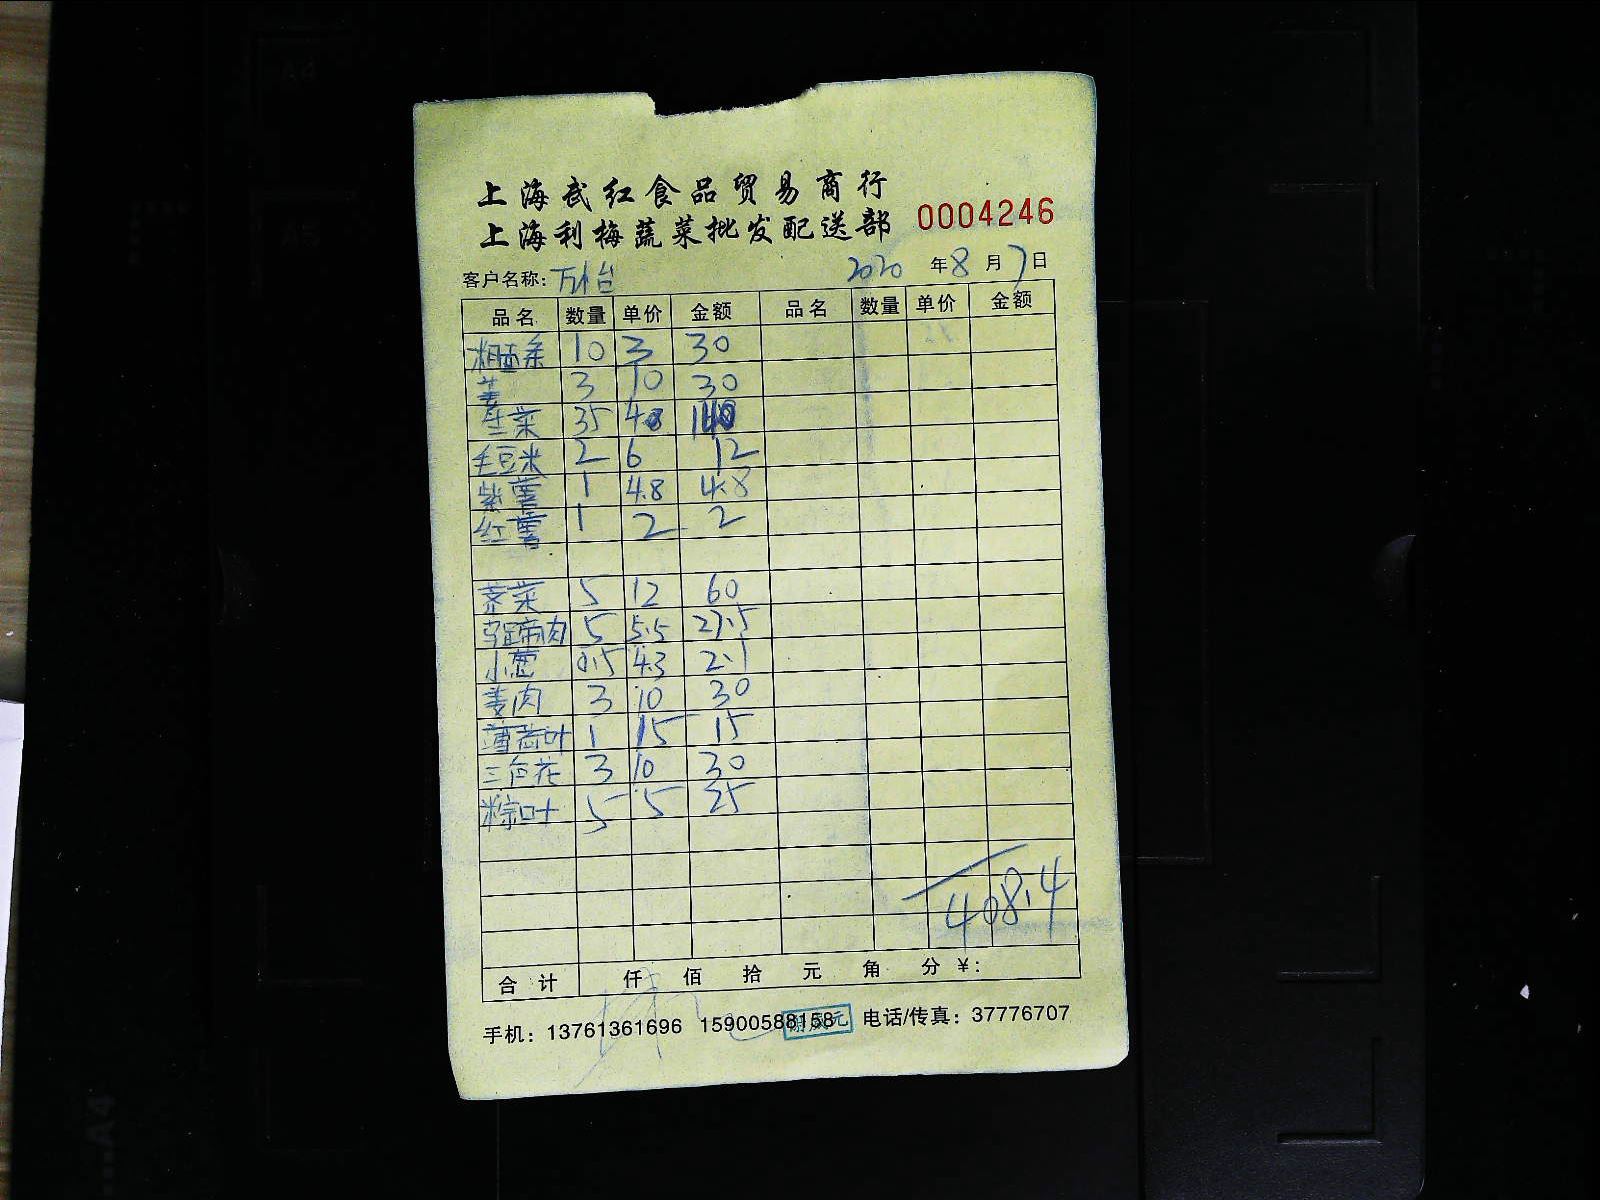 上海武红食品贸易商行
上海利梅蔬菜批发配送部 0004246
客户名称: 万怡 2020 年 8 月 7 日
品名 数量 单价 金额 品名 数量 单价 金额
粗面条 10 3 30
姜 3 10 30
生菜 35 4 140
毛豆米 2 6 12
紫薯 1 4.8 4.8
红薯 1 2 2
荠菜 5 12 60
马蹄肉 5 5.5 27.5
小葱 0.5 4.3 2.1
姜肉 3 10 30
薄荷叶 1 15 15
三色花 3 10 30
粽叶 5 5 25
408.4
合计 仟 佰 拾 元 角 分 ¥:
手机: 13761361696 15900588158 电话/传真: 37776707